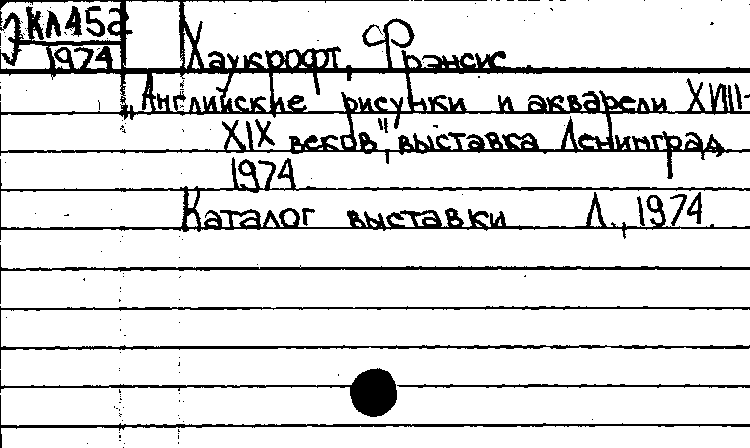 КЛ452
1974
Хаукрофт, Фрэнсис
„Английские рисунки и акварели XVIII-
XIX веков", выставка Ленинград
1974
Каталог выставки Л., 1974.